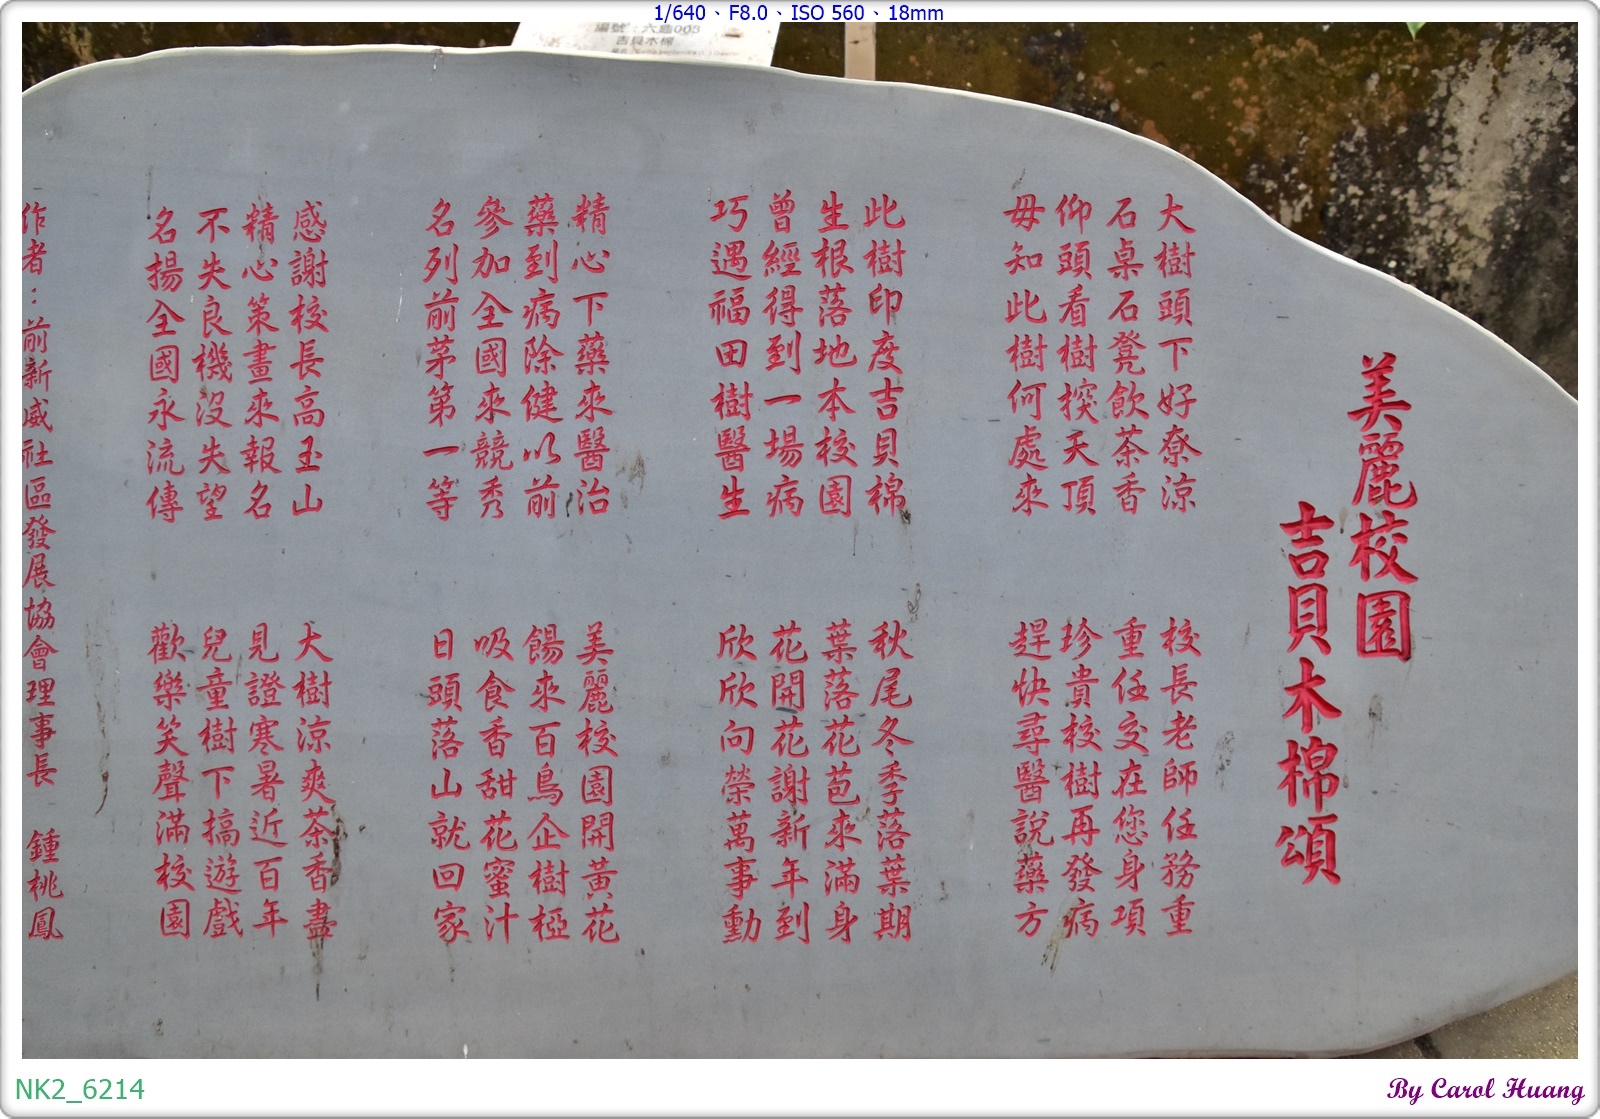 1/640、F8.0、ISO 560、18mm
編號：六龜003
吉貝木棉
美麗校園
吉貝木棉頌
大樹頭下好尞涼
石桌石凳飲茶香
仰頭看樹揬天頂
毋知此樹何處來
校長老師任務重
重任交在您身項
珍貴校樹再發病
趕快尋醫說藥方
此樹印度吉貝棉
生根落地本校園
曾經得到一場病
巧遇福田樹醫生
秋尾冬季落葉期
葉落花芭來滿身
花開花謝新年到
欣欣向榮萬事動
精心下藥來醫治
藥到病除健以前
參加全國來競秀
名列前茅第一等
美麗校園開黃花
餳來百鳥企樹椏
吸食香甜花蜜汁
日頭落山就回家
感謝校長高玉山
精心策畫來報名
不失良機沒失望
名揚全國永流傳
大樹涼爽茶香盡
見證寒暑近百年
兒童樹下搞遊戲
歡樂笑聲滿校園
作者：前新威社區發展協會理事長 鍾桃鳳
NK2_6214
By Carol Huang